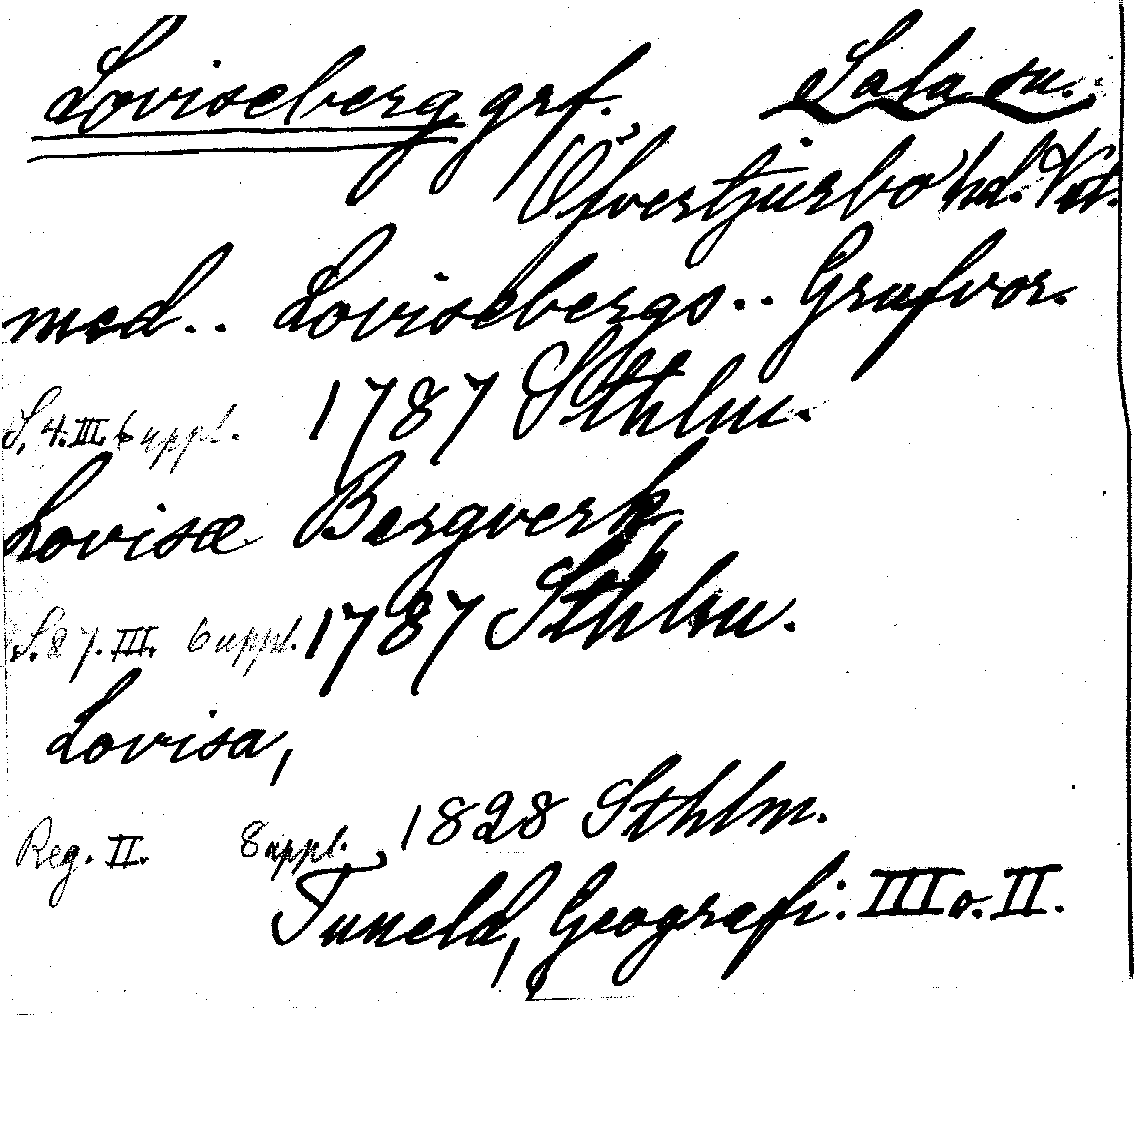 Loviseberg grf. Sala sn.
Öfvertjurbo hd. Vstm.
med.. Lovisebergs.. Grufvor.
S. 4. III. 6 uppl. 1787 Sthlm.
Lovisæ Bergverk,
S. 87. III. 6 uppl. 1787 Sthlm.
Lovisa,
Reg. II. 8 uppl. 1828 Sthlm.
Tuneld, Geografi. III o. II.